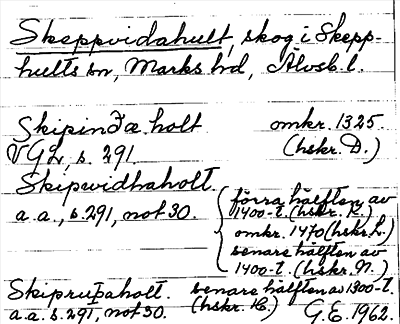 Skeppvidahult, skog i Skepp-
hults sn, Marks hd, Älvsb. l.
Skipinðæ holt omkr. 1325.
VGL, s. 291 (hskr. D.)
Skipwidhaholt. förra hälften av
1400-t. (hskr. K.)
a.a., s. 291, not 30. omkr. 1470 (hskr. L.)
senare hälften av
1400-t. (hskr. N.)
Skipruþaholt. senare hälften av 1300-t.
a.a. s. 291, not 30. (hskr. H.) G.E. 1962.